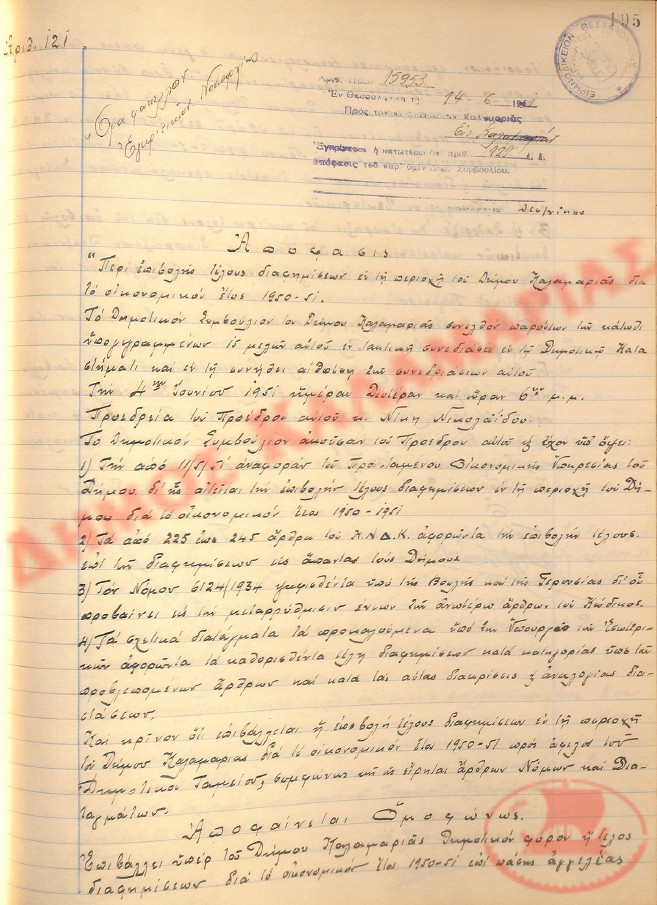 195
Αριθ. 121
15953
Ἐν Θεσσαλονίκῃ τῇ 14-6-1951
Πρὸς τὸν Καλαμαριᾶς
Ἐγκρίνεται ἡ κατωτέρω ὑπ' ἀριθ. 121
ἀπόφασις τοῦ παρ' ὑμῖν Δημ. Συμβουλίου.
Ἀπόφασις
"Περὶ ἐπιβολῆς τέλους διαφημίσεων ἐν τῇ περιοχῇ τοῦ Δήμου Καλαμαριᾶς διὰ
τὸ οἰκονομικὸν ἔτος 1950-51.
Τὸ Δημοτικὸν Συμβούλιον τοῦ Δήμου Καλαμαριᾶς συνελθὸν παρόντων τῶν κάτωθι
ὑπογεγραμμένων 15 μελῶν αὐτοῦ ἐν τακτικῇ συνεδριάσει ἐν τῷ Δημοτικῷ Κατα
στήματι καὶ ἐν τῇ συνήθει αἰθούσῃ τῶν συνεδριάσεων αὐτοῦ
Τὴν 4ην Ἰουνίου 1951 ἡμέραν Δευτέραν καὶ ὥραν 6ην μ.μ.
Προεδρεία τοῦ Προέδρου αὐτοῦ κ. Νίκη Νικολαΐδου.
Τὸ Δημοτικὸν Συμβούλιον ἀκοῦσαν τοῦ Προέδρου αὐτοῦ κ ἔχον ὑπ' ὄψει:
1) Τὴν ἀπὸ 11/5/51 ἀναφορὰν τοῦ Προϊσταμένου Οἰκονομικῆς Ὑπηρεσίας τοῦ
Δήμου δι' ἧς αἰτεῖται τὴν ἐπιβολὴν τέλους διαφημίσεων ἐν τῇ περιοχῇ τοῦ Δή-
μου διὰ τὸ οἰκονομικὸν ἔτος 1950-1951
2) Τὰ ἀπὸ 225 ἕως 245 ἄρθρα τοῦ Α.Ν.Δ.Κ. ἀφορῶντα τὴν ἐπιβολὴν τέλους
ἐπὶ τῶν διαφημίσεων εἰς ἅπαντας τοὺς Δήμους
3) Τὸν Νόμον 6124/1934 ψηφισθέντα ὑπὸ τῆς Βουλῆς καὶ τῆς Γερουσίας δι' οὗ
προβαίνει εἰς τὴν μεταρρύθμισιν ἐνίων τῶν ἀνωτέρω ἄρθρων τοῦ Κώδικος.
4) Τὰ σχετικὰ διατάγματα τὰ προκαλούμενα ὑπὸ τοῦ Ὑπουργείου τῶν Ἐσωτερι-
κῶν ἀφορῶντα τὰ καθορισθέντα τέλη διαφημίσεων κατὰ κατηγορίας ὑπὸ τῶν
προβλεπομένων ἄρθρων καὶ κατὰ τὰς αὐτὰς διακρίσεις κ ἀναλογίας δια-
τάσεων.
Καὶ κρῖνον ὅτι ἐπιβάλλεται ἡ ἐπιβολὴ τέλους διαφημίσεων ἐν τῇ περιοχῇ
τοῦ Δήμου Καλαμαριᾶς διὰ τὸ οἰκονομικὸν ἔτος 1950-51 πρὸς ὄφελος τοῦ
Δημοτικοῦ Ταμείου, συμφώνως τῶν ὡς εἴρηται ἄρθρων Νόμων καὶ Δια-
ταγμάτων.
Ἀποφαίνεται Ὁμοφώνως.
Ἐπιβάλλει ὑπὲρ τοῦ Δήμου Καλαμαριᾶς Δημοτικὸν φόρον ἢ τέλος
διαφημίσεων διὰ τὸ οἰκονομικὸν ἔτος 1950-51 ἐπὶ πάσης ἀγγελίας
ΔΗΜΟΣ ΚΑΛΑΜΑΡΙΑΣ